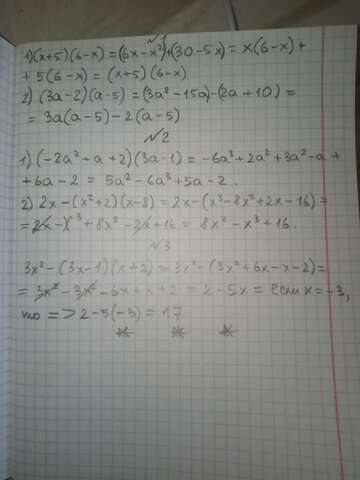 №1
1) (x+5)(6-x)=(6x-x²)+(30-5x)=x(6-x)+
+5(6-x)=(x+5)(6-x)
2) (3a-2)(a-5)=(3a²-15a)-(2a+10)=
=3a(a-5)-2(a-5)
№2
1) (-2a²+a+2)(3a-1)=-6a³+2a²+3a²-a+
+6a-2=5a²-6a³+5a-2.
2) 2x-(x²+2)(x-8)=2x-(x³-8x²+2x-16)=
=2x-x³+8x²-2x+16=8x²-x³+16.
№3
3x²-(3x-1)(x+2)=3x²-(3x²+6x-x-2)=
=3x²-3x²-6x+x+2=2-5x=если x=-3,
то =>2-5(-3)=17